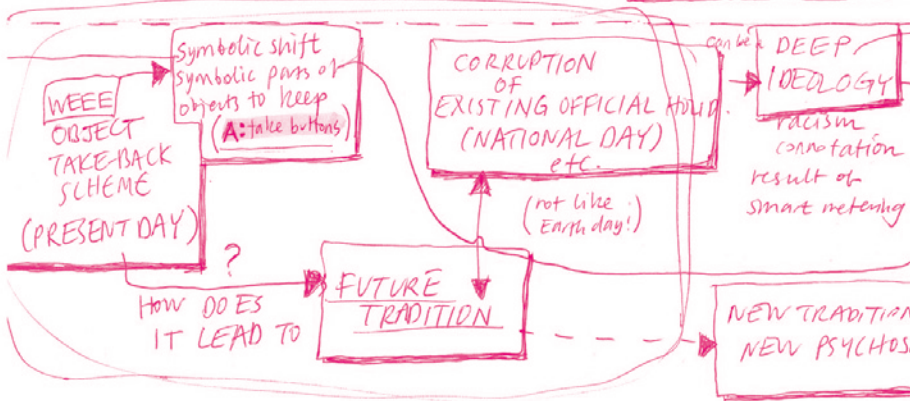 WEEE
OBJECT
TAKE-BACK
SCHEME
(PRESENT DAY)
Symbolic shift
symbolic parts of
objects to keep
(A: take buttons)
CORRUPTION
OF
EXISTING OFFICIAL HOLID.
(NATIONAL DAY)
etc.
can be a
DEEP
IDEOLOGY
racism
connotation
result of
smart metering
(not like
Earth day!)
?
HOW DOES
IT LEAD TO
FUTURE
TRADITION
NEW TRADITION
NEW PSYCHOS